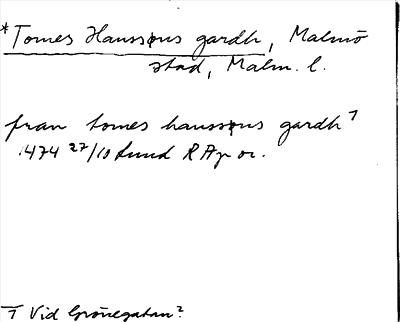 *Tomes Haussons gardh, Malmö
stad, Malm. l.
fran tomes haussons gardh 1
1474 27/10 Lund RAp or.
1 Vid Grönegatan?